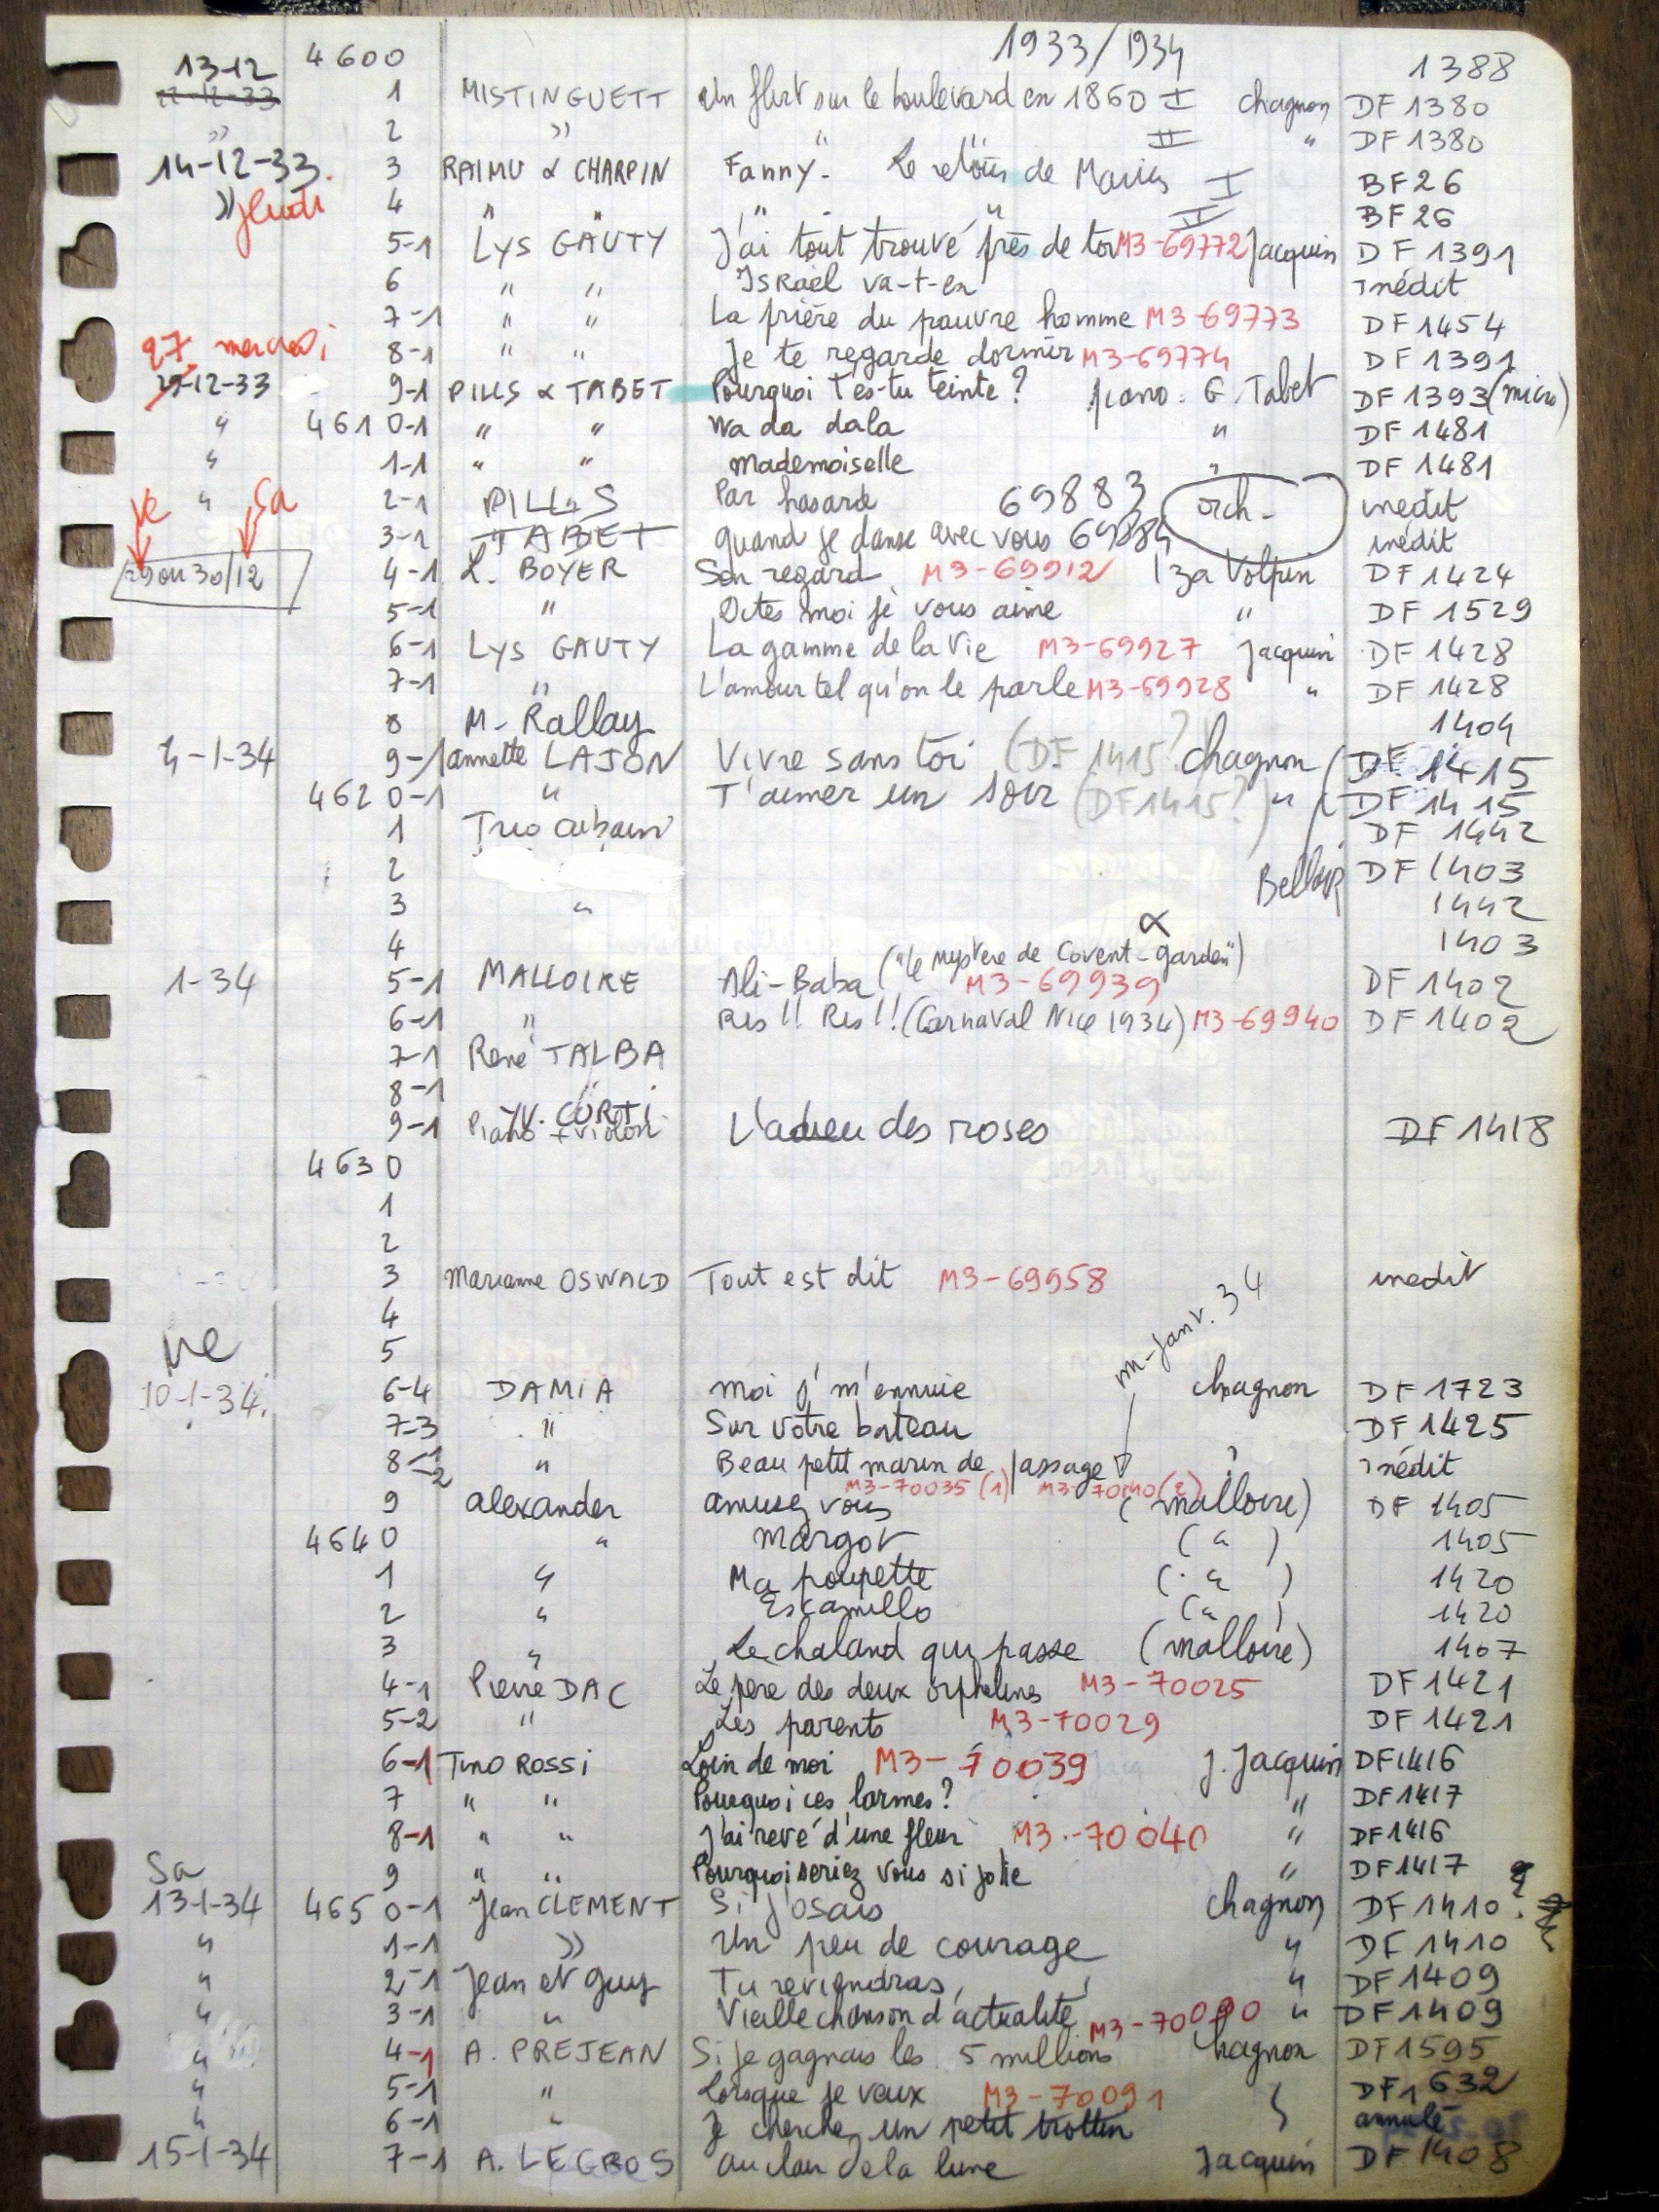 1933/1934
13-12 4600 1388
12-12-33 1 MISTINGUETT Un flirt sur le boulevard en 1860 I Chagnon DF 1380
" 2 " " II " DF 1380
14-12-33. 3 RAIMU & CHARPIN Fanny - Le retour de Marius I BF 26
" Jeudi 4 " " " " " II BF 26
5-1 LYS GAUTY J'ai tout trouvé près de toi M3-69772 Jacquin DF 1391
6 " " Israël va-t-en inédit
7-1 " " La prière du pauvre homme M3-69773 DF 1454
27 mercredi 8-1 " " Je te regarde dormir M3-69774 DF 1391
-12-33 9-1 PILLS & TABET Pourquoi t'es-tu teinte? piano. G. Tabet DF 1393 (micro)
" 4610-1 " " Wa da dala " DF 1481
" 1-1 " " Mademoiselle " DF 1481
Ve " Sa 2-1 PILLS Par hasard 69883 orch- inédit
3-1 TABET Quand je danse avec vous 69884 inédit
29 ou 30/12 4-1 L. BOYER Son regard M3-69912 Iza Volpin DF 1424
5-1 " Dites moi je vous aime " DF 1529
6-1 LYS GAUTY La gamme de la vie M3-69927 Jacquin DF 1428
7-1 " L'amour tel qu'on le parle M3-69928 " DF 1428
8 M. Rallay 1404
4-1-34 9-1 annette LAJON Vivre sans toi (DF 1415? Chagnon (DF 1415
4620-1 " T'aimer un soir (DF 1415?) " (DF 1415
1 Trio cubain DF 1442
2 DF 1403
3 " 1442
4 1403
1-34 5-1 MALLOIRE Ali-Baba ("Le mystère de Covent-garden") α M3-69939 DF 1402
6-1 " Ris!! Ris!! (Carnaval Nice 1934) M3-69940 DF 1402
7-1 René TALBA
8-1 "
9-1 YV. CURTI Piano + violon L'adieu des roses DF 1418
4630
1
2
3 Marianne OSWALD Tout est dit M3-69958 inédit
4
Ve 5 mi-janv. 34
10-1-34. 6-4 DAMIA Moi j' m'ennuie Chagnon DF 1723
7-3 " Sur votre bateau DF 1425
8-1-2 " Beau petit marin de passage ? inédit
M3-70035 (1) M3-70140 (2)
9 alexander amusez vous (Malloire) DF 1405
4640 " Margot ( " ) 1405
1 " Ma poupette ( " ) 1420
2 " Escamillo ( " ) 1420
3 " Le chaland qui passe (Malloire) 1407
4-1 Pierre DAC Le père des deux orphelines M3-70025 DF 1421
5-2 " Les parents M3-70029 DF 1421
6-1 Tino ROSSI Loin de moi M3-70039 J. Jacquin DF 1416
7 " " Pourquoi ces larmes? " DF 1417
8-1 " " J'ai revé d'une fleur M3-70040 " DF 1416
Sa 9 " " Pourquoi seriez vous si jolie " DF 1417
13-1-34 4650-1 Jean CLEMENT Si j'osais Chagnon DF 1410
" 1-1 " Un peu de courage " DF 1410
" 2-1 Jean et Guy Tu reviendras " DF 1409
" 3-1 " Vieille chanson d'actualité M3-70090 " DF 1409
" 4-1 A. PREJEAN Si je gagnais les 5 millions Chagnon DF 1595
" 5-1 " Lorsque je veux M3-70091 DF 1632
" 6-1 " Je cherche un petit trottin annulé
15-1-34 7-1 A. LEGROS au clair de la lune Jacquin DF 1408